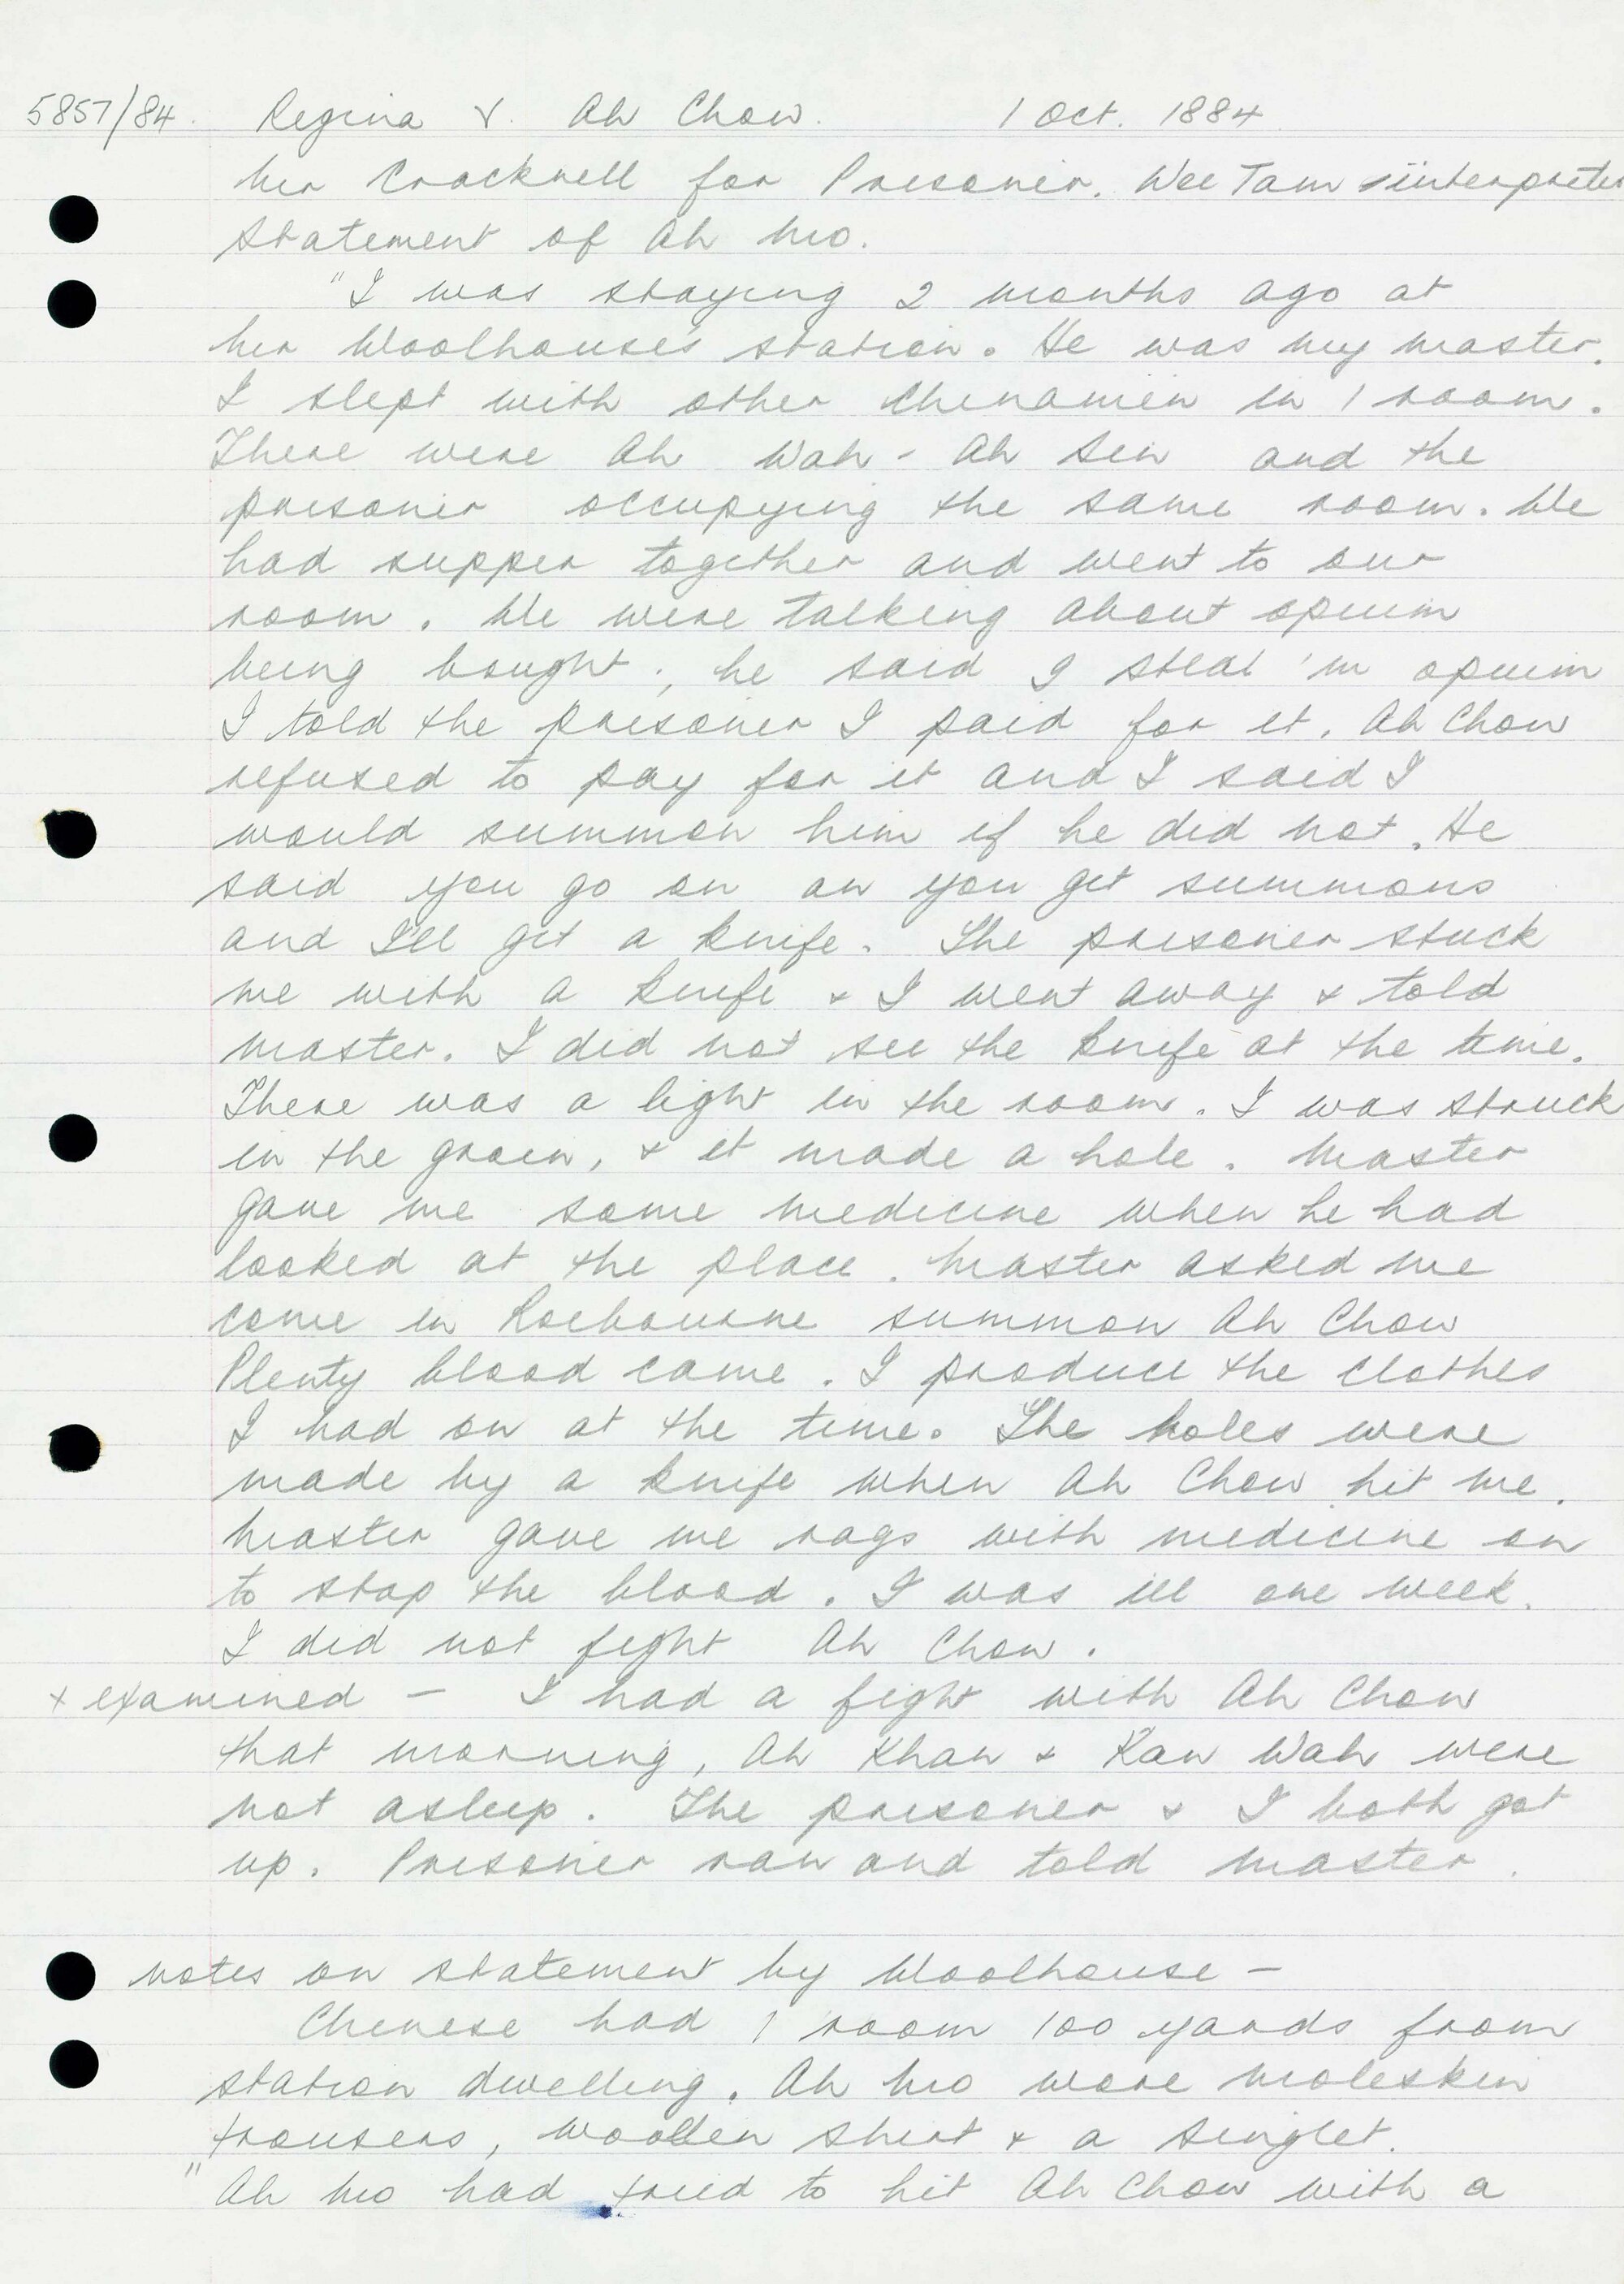 5857/84. Regina v. Ah Chow. 1 Oct. 1884
Mr Cracknell for Prisoner. Wee Tam interpreter
Statement of Ah Mo.
"I was staying 2 months ago at
Mr Woolhouse's station. He was my master.
I slept with other Chinamen in 1 room.
There were Ah Wah - Ah Sin and the
prisoner occupying the same room. We
had supper together and went to our
room. We were talking about opium
being bought; he said I steal 'm opium
I told the prisoner I paid for it. Ah Chow
refused to pay for it and I said I
would summon him if he did not. He
said you go on an you get summons
and I'll get a knife. The prisoner stuck
me with a knife & I went away & told
master. I did not see the knife at the time.
There was a light in the room. I was struck
in the groin, & it made a hole. Master
gave me some medicine when he had
looked at the place. Master asked me
come in Roebourne summon Ah Chow
Plenty blood came. I produce the clothes
I had on at the time. The holes were
made by a knife when Ah Chow hit me.
Master gave me rags with medicine on
to stop the blood. I was ill one week.
I did not fight Ah Chow.
x examined - I had a fight with Ah Chow
that morning, Ah Khan & Kan Wah were
not asleep. The prisoner & I both got
up. Prisoner ran and told master.
notes on statement by Woolhouse -
Chinese had 1 room 100 yards from
station dwelling. Ah Mo wore moleskin
trousers, woollen shirt & a singlet.
"Ah Mo had tried to hit Ah Chow with a